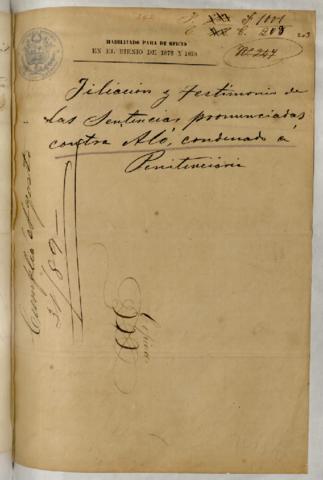 HABILITADO PARA DE OFICIO
EN EL BIENIO DE 1878 Y 1879
Nº 247
Filiacion y testimonio de
las Sentencias pronunciadas
contra Aló, condenado á
Penitenciaria
Cumplió el agosto
31/89